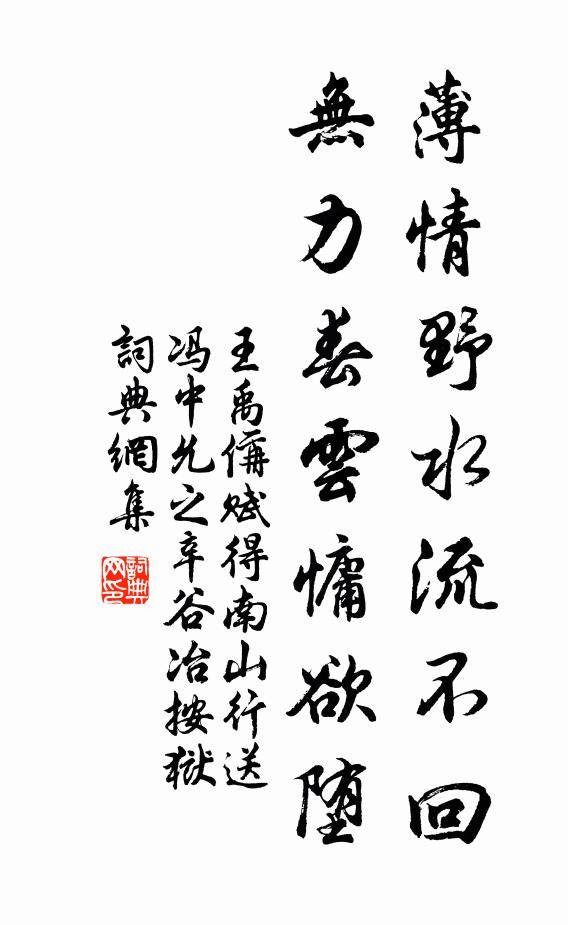 薄情野水流不回
無力春雲慵欲堕
王禹偁赋得南山行送
冯中允之辛谷冶按獄
詞典網集
詞典网印